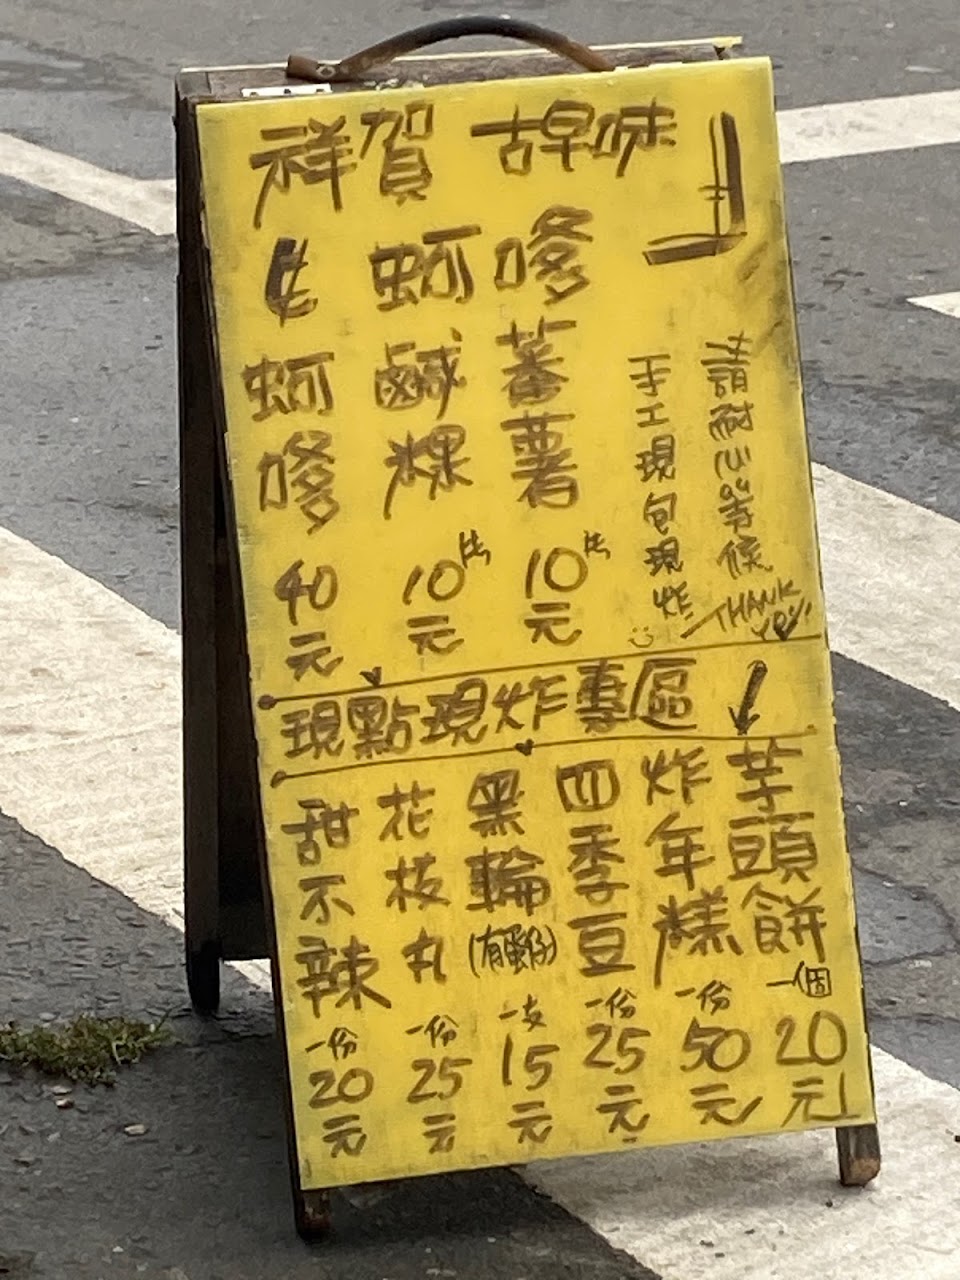 祥賀 古早味
蚵嗲
請耐心等候
THANK YOU
手工現包現炸
蕃薯 10元
鹹粿 10元
蚵嗲 40元
現點現炸專區
芋頭餅 一個 20元
炸年糕 一份 50元
四季豆 一份 25元
黑輪 (有蛋仔) 一支 15元
花枝丸 一份 25元
甜不辣 一份 20元